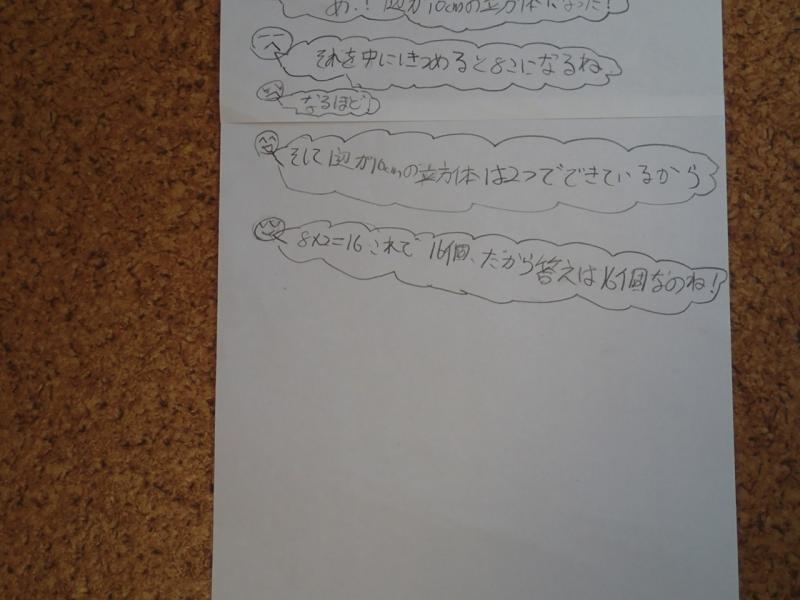 あ!1辺が10cmの立方体になった!
それを中にきつめると8こになるね
なるほど
そして1辺が10cmの立方体は2つでできているから
8×2=16これで16個、だから答えは16個なのね!